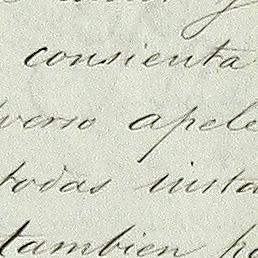 consienta
verso apele
todas insta
tambien pa